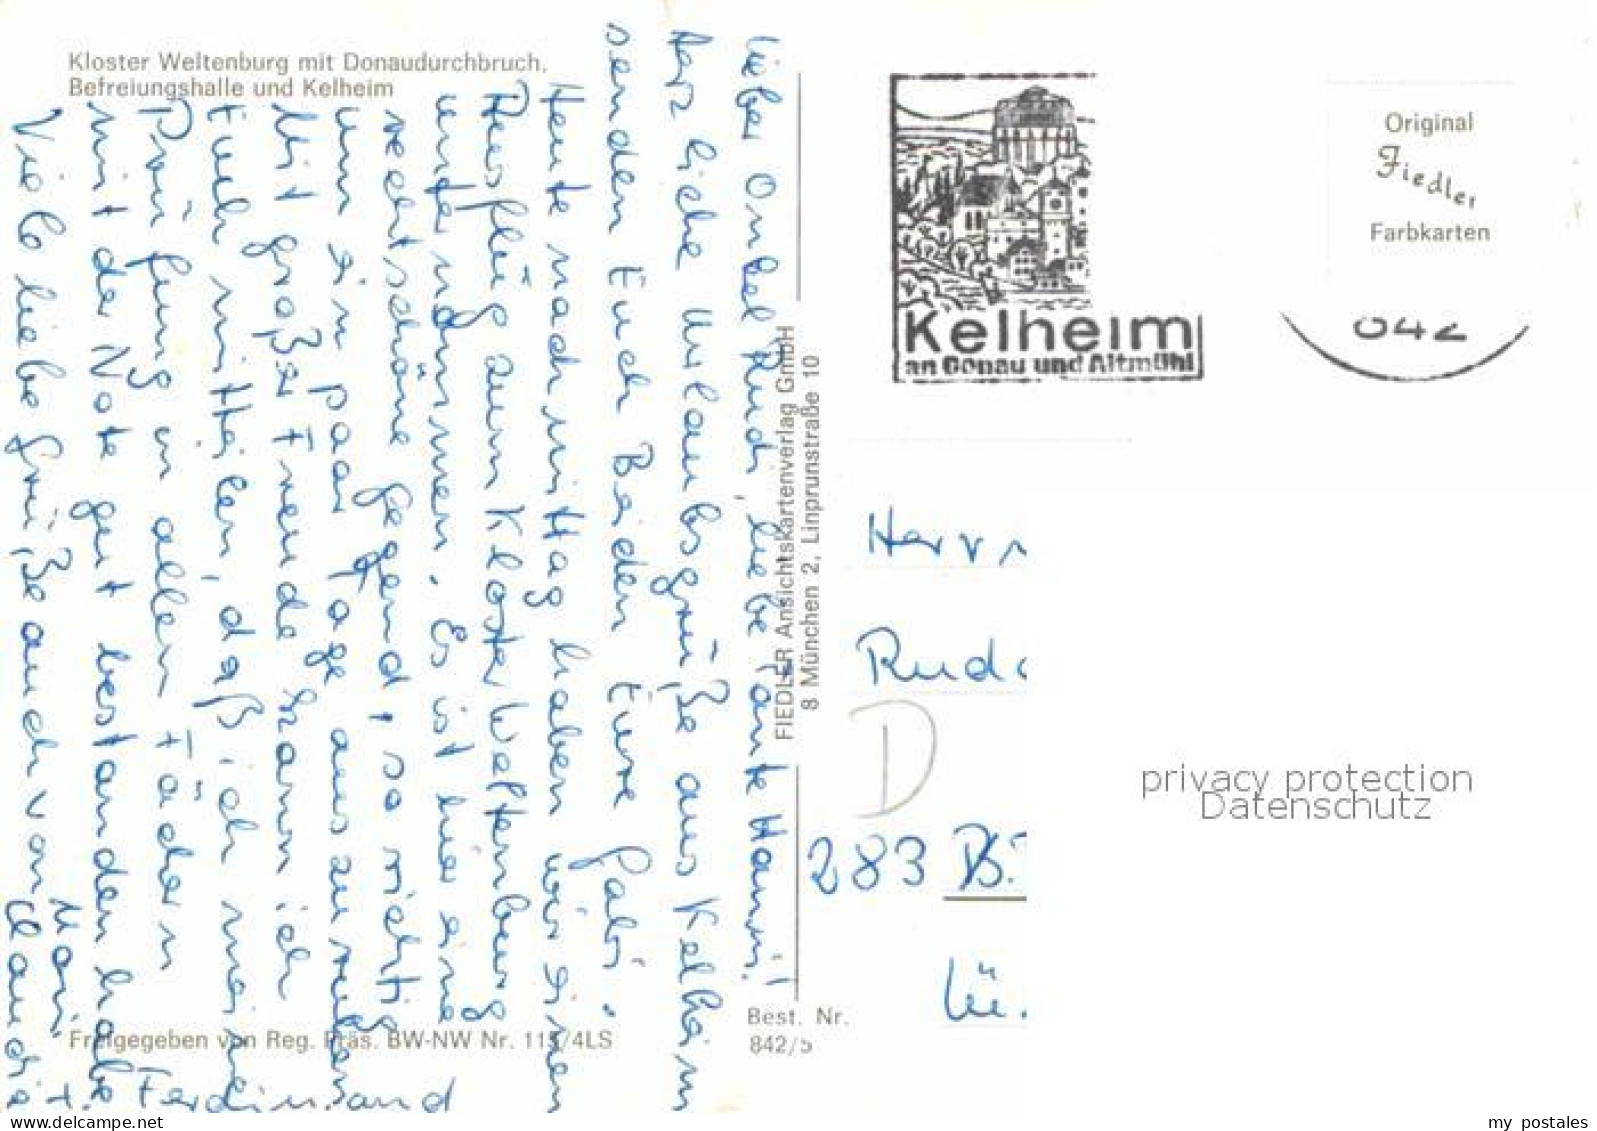 Kloster Weltenburg mit Donaudurchbruch,
Befreiungshalle und Kelheim
Lieber Onkel Rudi, liebe Tante Hanni!
Herzliche Urlaubsgrüße aus Kelheim
senden Euch Beiden Eure Gabi.
Heute nachmittag haben wir einen
Ausflug zum Kloster Weltenburg
unternommen. Es ist hier eine
recht schöne Gegend, so richtig
um ein paar Tage auszuruhen
Mit großer Freude kann ich
Euch mitteilen, daß ich meine
Prüfung in allen Fächern
mit der Note gut bestanden habe
Viele liebe Grüße auch von Claudia +
Ferdinand
Freigegeben von Reg. Präs. BW-NW Nr. 115/4LS
FIEDLER Ansichtskartenverlag GmbH
8 München 2, Linprunstraße 10
Best. Nr.
842/5
Kelheim
an Donau und Altmühl
842
Original
Fiedler
Farbkarten
Herrn
Rud
D
283 B
privacy protection
Datenschutz
my postales